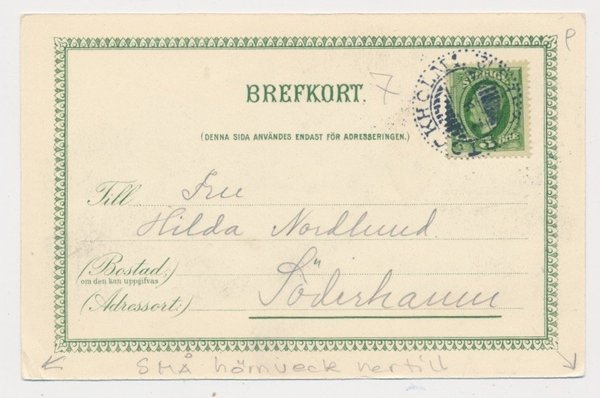 P
7
BREFKORT.
(DENNA SIDA ANVÄNDES ENDAST FÖR ADRESSERINGEN.)
SVERIGE
STOCKHOLM
Till Fru
Hilda Nordlund
(Bostad:)
om den kan uppgifvas
(Adressort:) Söderhamn
SMÅ hörnveck nertill